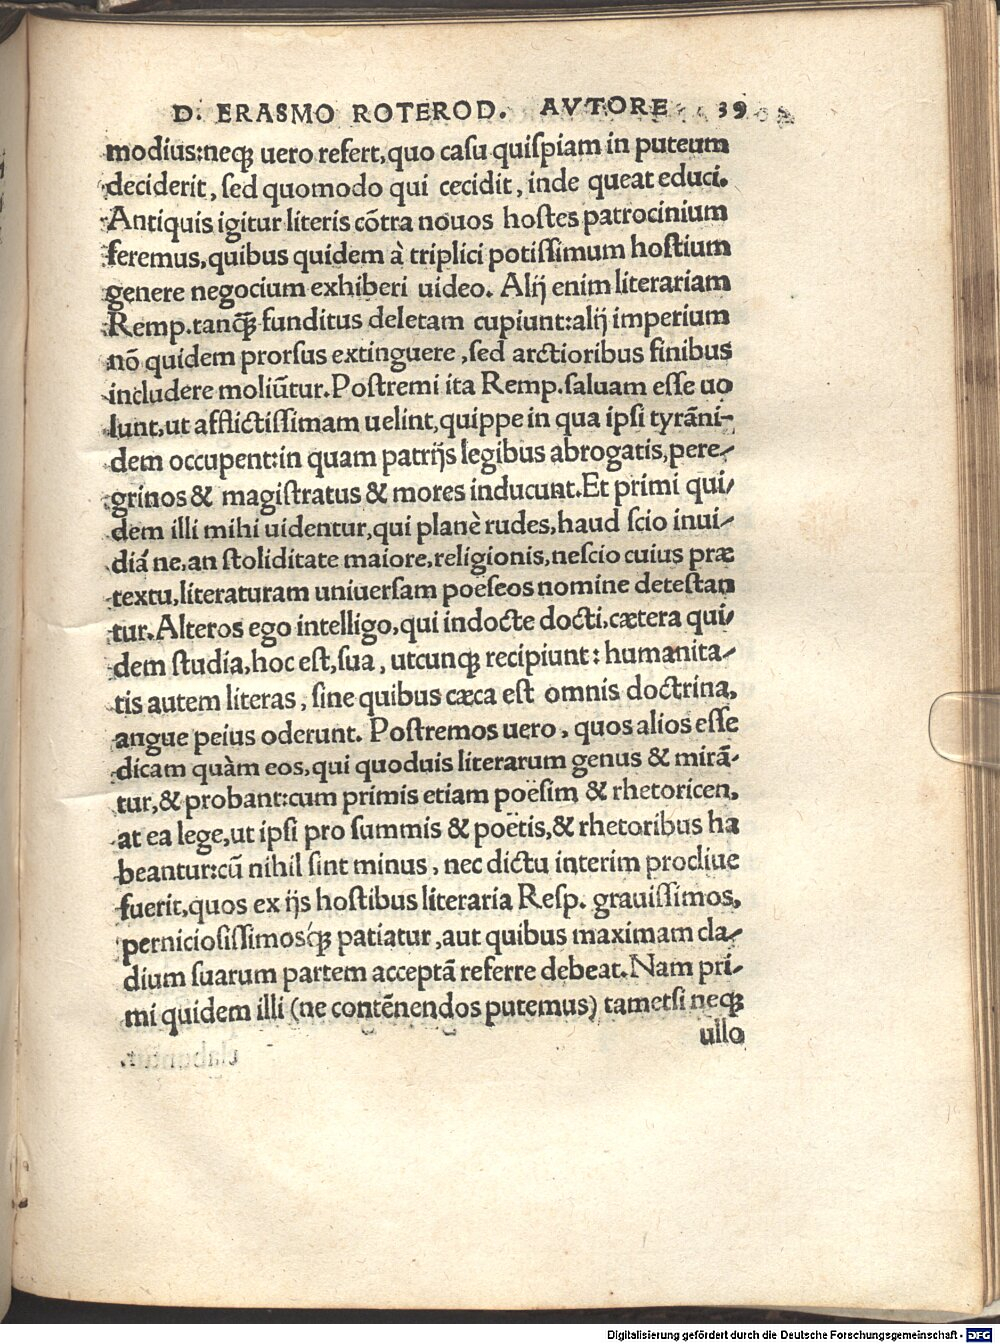 D. ERASMO ROTEROD. AVTORE 39
modius:neqꝫ uero refert,quo caſu quiſpiam in puteum
deciderit, ſed quomodo qui cecidit, inde queat educi.
Antiquis igitur literis cõtra nouos hoſtes patrocinium
feremus,quibus quidem à triplici potiſſimum hoſtium
genere negocium exhiberi uideo. Alij enim literariam
Remp.tanq̃ꝫ funditus deletam cupiunt:alij imperium
nõ quidem prorſus extinguere, ſed arctioribus finibus
includere moliũtur.Poſtremi ita Remp.ſaluam eſſe uo
lunt,ut afflictiſſimam uelint,quippe in qua ipſi tyrãni-
dem occupent:in quam patrijs legibus abrogatis,pere-
grinos & magiſtratus & mores inducunt.Et primi qui-
dem illi mihi uidentur,qui planè rudes,haud ſcio inui-
diá ne,an ſtoliditate maiore,religionis,neſcio cuius præ
textu,literaturam uniuerſam poëſeos nomine deteſtan
tur.Alteros ego intelligo,qui indocte docti,cætera qui-
dem ſtudia,hoc eſt,ſua, utcunqꝫ recipiunt: humanita-
tis autem literas, ſine quibus cæca eſt omnis doctrina,
angue peius oderunt. Poſtremos uero, quos alios eſſe
dicam quàm eos,qui quoduis literarum genus & mirã-
tur,& probant:cum primis etiam poëſim & rhetoricen,
at ea lege,ut ipſi pro ſummis & poëtis,& rhetoribus ha
beantur:cũ nihil ſint minus, nec dictu interim procliue
fuerit,quos ex ijs hoſtibus literaria Reſp. grauiſſimos,
pernicioſiſſimosq́ꝫ patiatur,aut quibus maximam cla-
dium ſuarum partem acceptã referre debeat.Nam pri-
mi quidem illi (ne contẽnendos putemus) tametſi neqꝫ
ullo
Digitalisierung gefördert durch die Deutsche Forschungsgemeinschaft - DFG